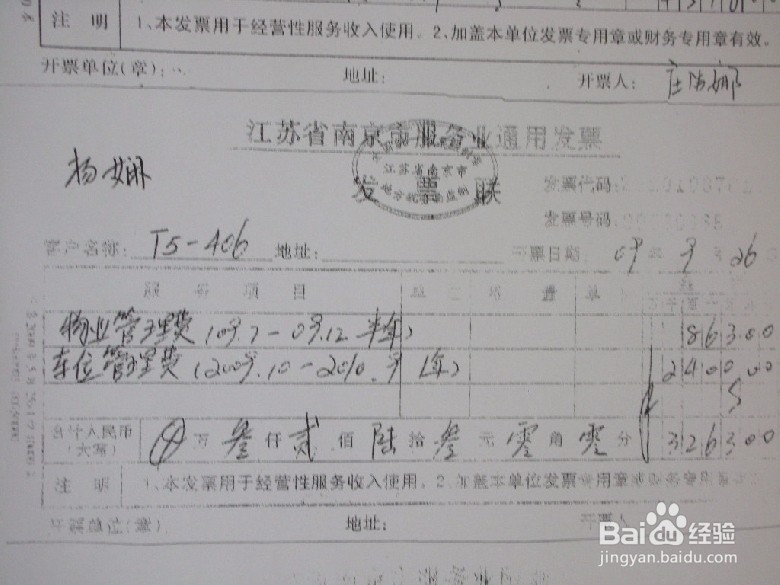 注 明 1、本发票用于经营性服务收入使用。2、加盖本单位发票专用章或财务专用章有效。
开票单位(章): 地址: 开票人:
江苏省南京市服务业通用发票
杨娴
江苏省南京市
发 票 联
发票代码:
发票号码:
客户名称: T5-406 地址: 开票日期 09 年 9 月 26
服 务 项 目 单 数 量 单
物业管理费(09.7-09.12 半年) 863.00
车位管理费(2009.10-2010.9 1年) 2400.00
合计人民币(大写) 万 叁 仟 贰 佰 陆 拾 叁 元 零 角 零 分 3263.00
注 明 1、本发票用于经营性服务收入使用。2、加盖本单位发票专用章或财务专用章
开票单位(章) 地址: 开票人
Baidu经验
jingyan.baidu.com